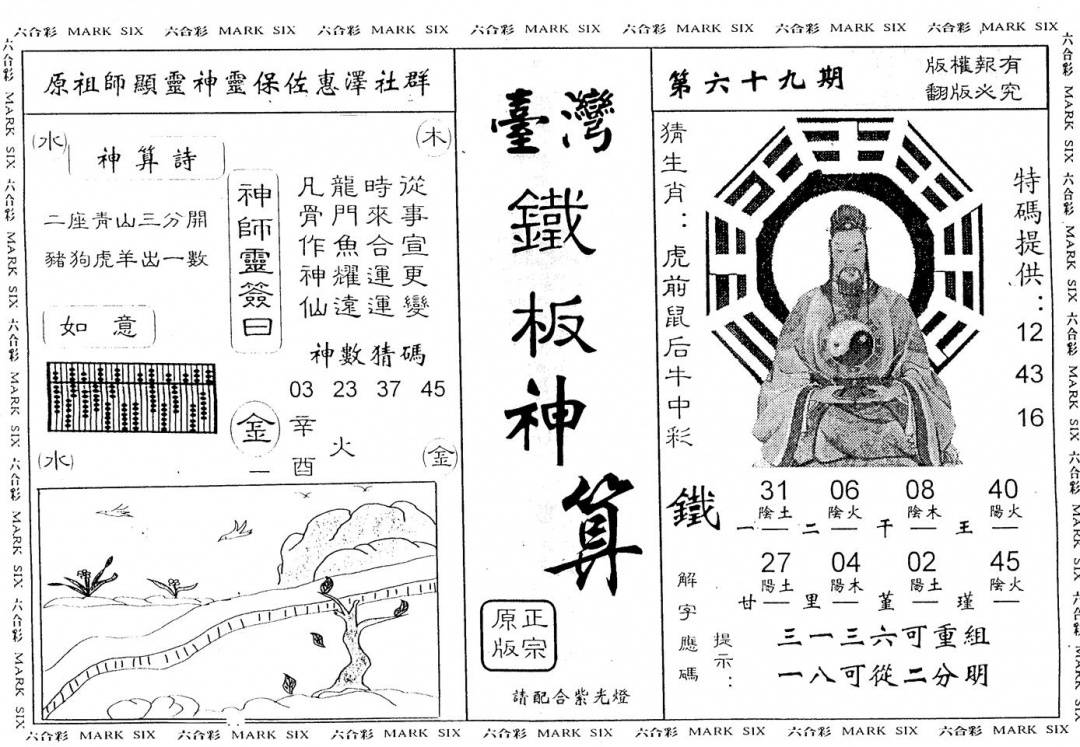 六合彩 MARK SIX 六合彩 MARK SIX 六合彩 MARK SIX 六合彩 MARK SIX 六合彩 MARK SIX 六合彩 MARK SIX 六合彩 MARK SIX
原祖師顯靈神靈保佐惠澤社群
(水)
(木)
神算詩
二座青山三分開
豬狗虎羊出一數
如意
神師靈簽曰
從事宣更變
時來合運運
龍門魚耀遠
凡骨作神仙
神數猜碼
03 23 37 45
金
一
辛酉
火
(水)
(金)
臺灣
鐵板神算
正宗
原版
請配合紫光燈
第六十九期
版權報有
翻版必究
猜生肖：虎前鼠后牛中彩
特碼提供：
12
43
16
鐵
31 06 08 40
陰土 陰火 陰木 陽火
一 二 干 王
27 04 02 45
陽土 陽木 陽土 陰火
甘 里 堇 瑾
解字應碼
提示：
三一三六可重組
一八可從二分明
六合彩 MARK SIX 六合彩 MARK SIX 六合彩 MARK SIX 六合彩 MARK SIX 六合彩 MARK SIX 六合彩 MARK SIX 六合彩 MARK SIX
六合彩 MARK SIX 六合彩 MARK SIX 六合彩 MARK SIX 六合彩 MARK SIX 六合彩 MARK SIX
六合彩 MARK SIX 六合彩 MARK SIX 六合彩 MARK SIX 六合彩 MARK SIX 六合彩 MARK SIX